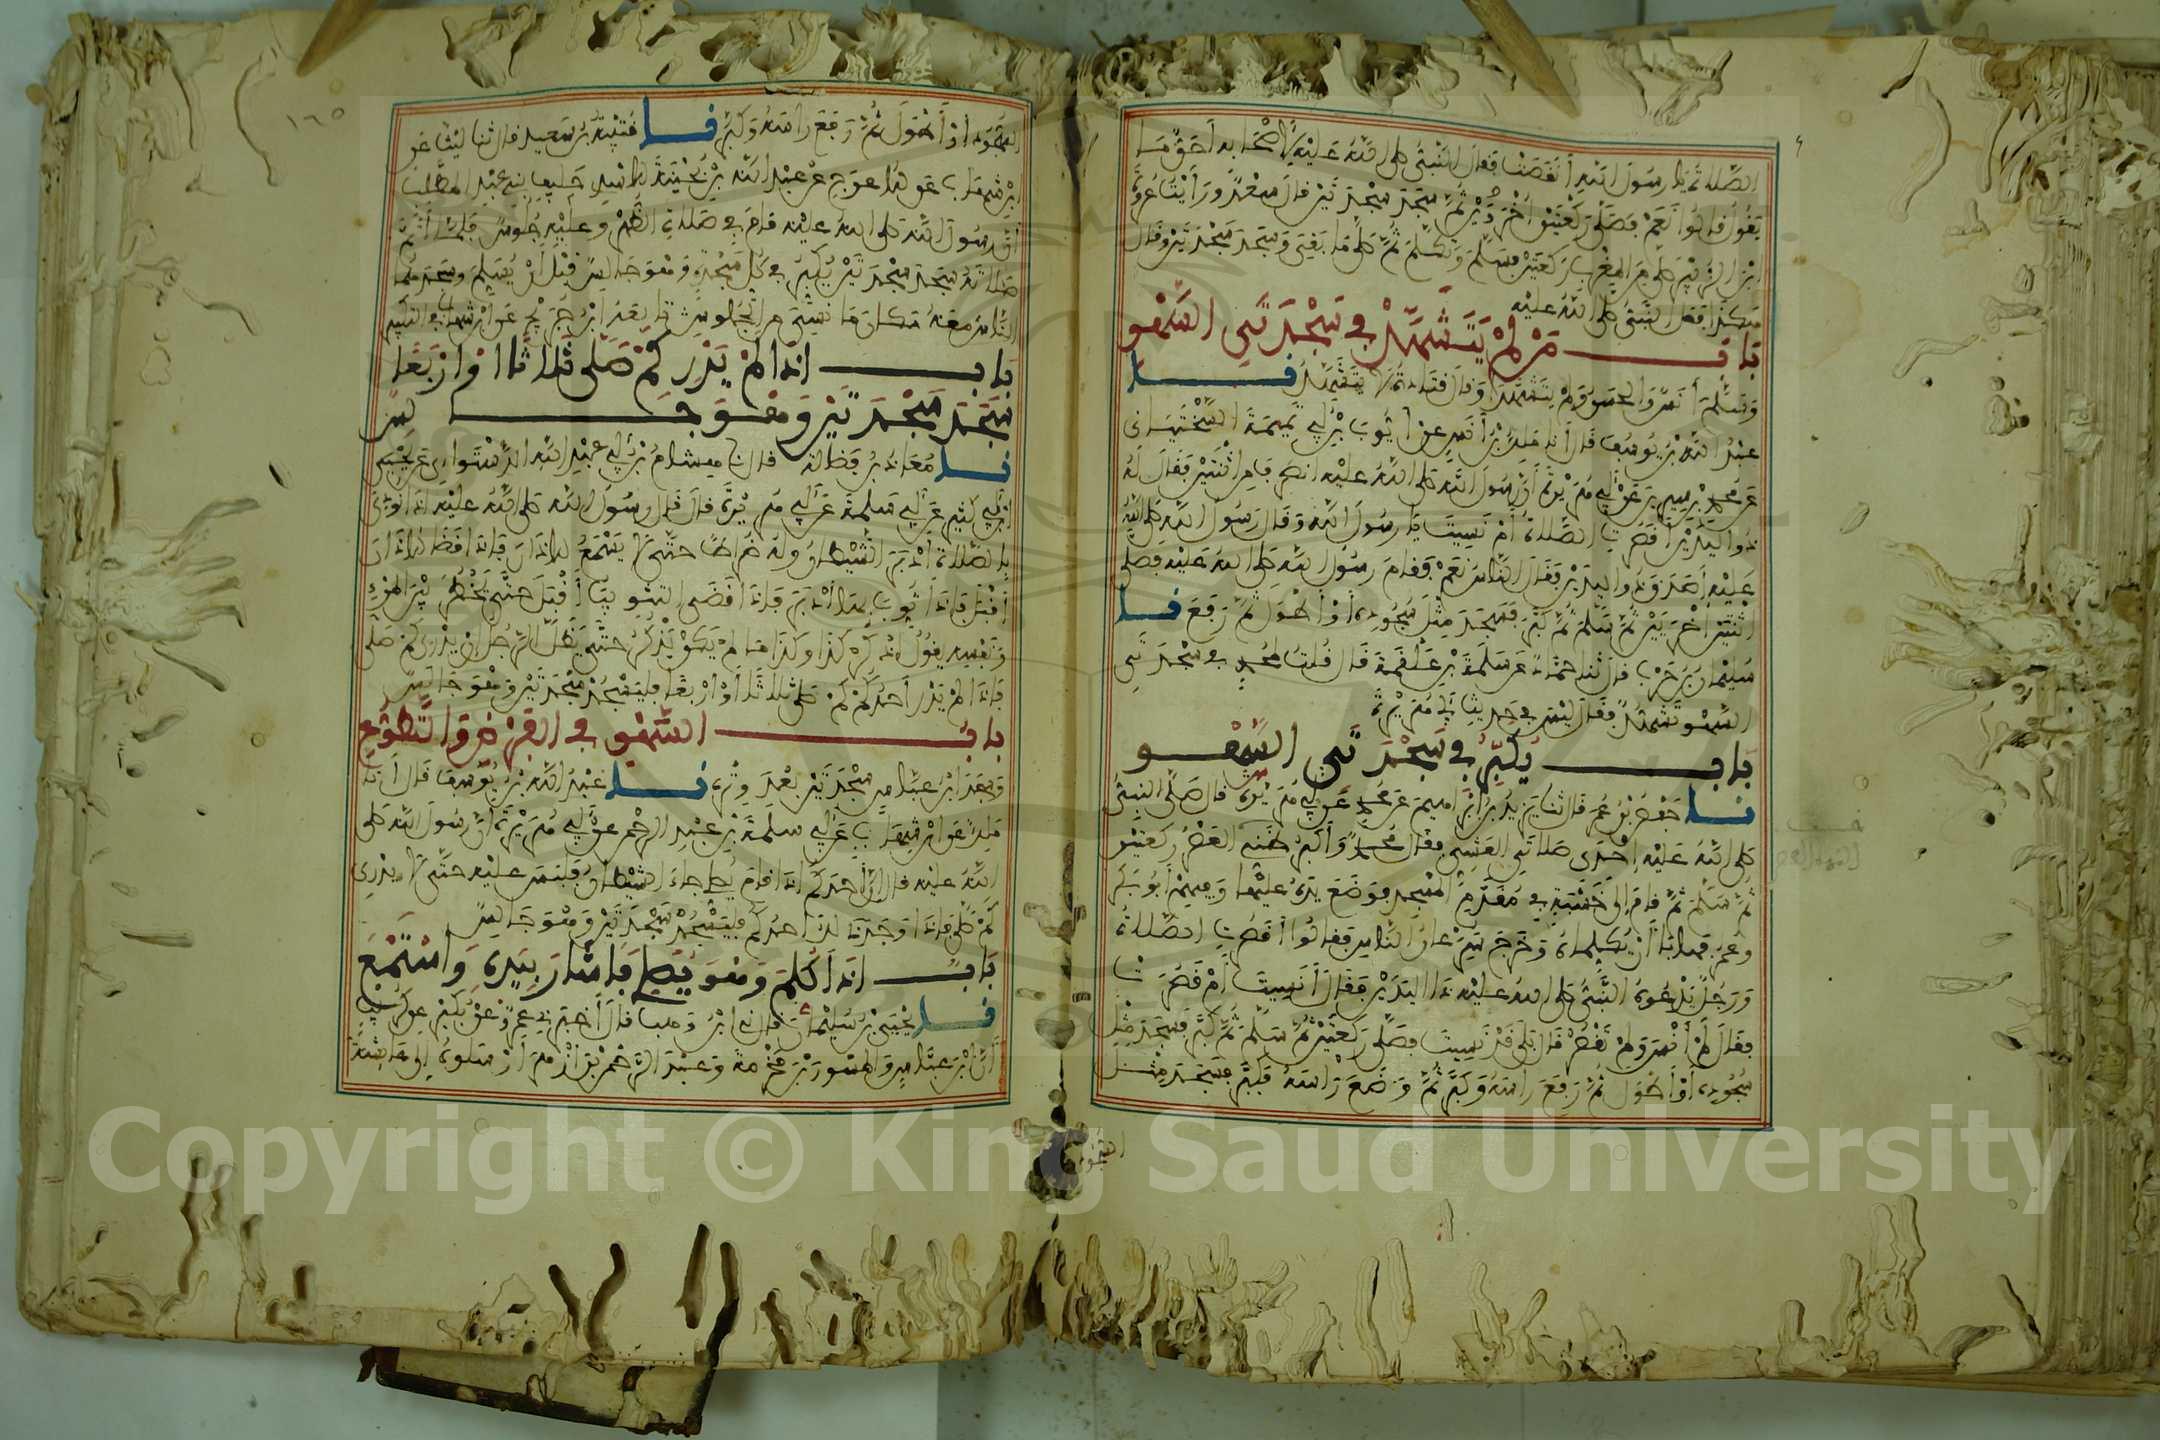 الصلاة يا رسول الله أنقصت فقال النبي صلى الله عليه لأصحابه أحق ما
يقول قالوا نعم فصلى ركعتين أخريين ثم سجد سجدتين قال سعد ورأيت عروة
ابن الزبير صلى من المغرب ركعتين فسلم وتكلم ثم صلى ما بقي وسجد سجدتين وقال
هكذا فعل النبي صلى الله عليه
باب من لم يتشهد في سجدتي السهو
وسلم أنس والحسن ولم يتشهدا وقال قتادة لا يتشهد نا
عبد الله بن يوسف قال أنا ملك بن أنس عن أيوب بن أبي تميمة السختياني
عن محمد بن سيرين عن أبي هريرة أن رسول الله صلى الله عليه انصرف من اثنتين فقال له
ذو اليدين أقصرت الصلاة أم نسيت يا رسول الله وقال رسول الله صلى الله
عليه أصدق ذو اليدين فقال الناس نعم فقام رسول الله صلى الله عليه فصلى
اثنتين أخريين ثم سلم ثم كبر فسجد مثل سجوده أو أطول ثم رفع نا
سليمان بن حرب قال نا حماد عن سلمة بن علقمة قال قلت لمحمد في سجدتي
السهو تشهد فقال ليس في حديث أبي هريرة
باب يكبر في سجدتي السهو
نا حفص بن عمر قال نا يزيد بن إبراهيم عن محمد عن أبي هريرة قال صلى النبي
صلى الله عليه إحدى صلاتي العشي فقال محمد وأكبر ظني العصر ركعتين
ثم سلم ثم قام إلى خشبة في مقدم المسجد فوضع يده عليها وفيهم أبو بكر
وعمر فهابا أن يكلماه وخرج سرعان الناس فقالوا أقصرت الصلاة
ورجل يدعوه النبي صلى الله عليه ذا اليدين فقال أنسيت أم قصرت
فقال لم أنس ولم تقصر قال بلى قد نسيت فصلى ركعتين ثم سلم ثم كبر فسجد مثل
سجوده أو أطول ثم رفع رأسه وكبر ثم وضع رأسه فكبر فسجد مثل
السجود
١٦٥
سجوده أو أطول ثم رفع رأسه وكبر نا قتيبة بن سعيد قال نا ليث عن
ابن شهاب عن الأعرج عن عبد الله بن بحينة الأسدي حليف بني عبد المطلب
أن رسول الله صلى الله عليه قام في صلاة الظهر وعليه جلوس فلما أتم
صلاته سجد سجدتين يكبر في كل سجدة وهو جالس قبل أن يسلم وسجدهما
الناس معه مكان ما نسي من الجلوس تابعه ابن جريج عن ابن شهاب في التكبير
باب إذا لم يدر كم صلى ثلاثا أو أربعا
سجد سجدتين وهو جالس
نا معاذ بن فضالة قال نا هشام بن أبي عبد الله الدستوائي عن يحيى
ابن أبي كثير عن أبي سلمة عن أبي هريرة قال قال رسول الله صلى الله عليه إذا نودي
بالصلاة أدبر الشيطان وله ضراط حتى لا يسمع الأذان فإذا قضي الأذان
أقبل فإذا ثوب بها أدبر فإذا قضي التثويب أقبل حتى يخطر بين المرء
ونفسه يقول اذكر كذا وكذا ما لم يكن يذكر حتى يظل الرجل إن يدري كم صلى
فإذا لم يدر أحدكم كم صلى ثلاثا أو أربعا فليسجد سجدتين وهو جالس
باب السهو في الفرض والتطوع
وسجد ابن عباس سجدتين بعد وتره نا عبد الله بن يوسف قال أنا
ملك عن ابن شهاب عن أبي سلمة بن عبد الرحمن عن أبي هريرة أن رسول الله صلى
الله عليه قال إن أحدكم إذا قام يصلي جاء الشيطان فلبس عليه حتى لا يدري
كم صلى فإذا وجد ذلك أحدكم فليسجد سجدتين وهو جالس
باب إذا كلم وهو يصلي فأشار بيده واستمع
نا يحيى بن سليمان قال نا ابن وهب قال أخبرني عمرو عن بكير عن كريب
أن ابن عباس والمسور بن مخرمة وعبد الرحمن بن أزهر أرسلوه إلى عائشة
Copyright © King Saud University